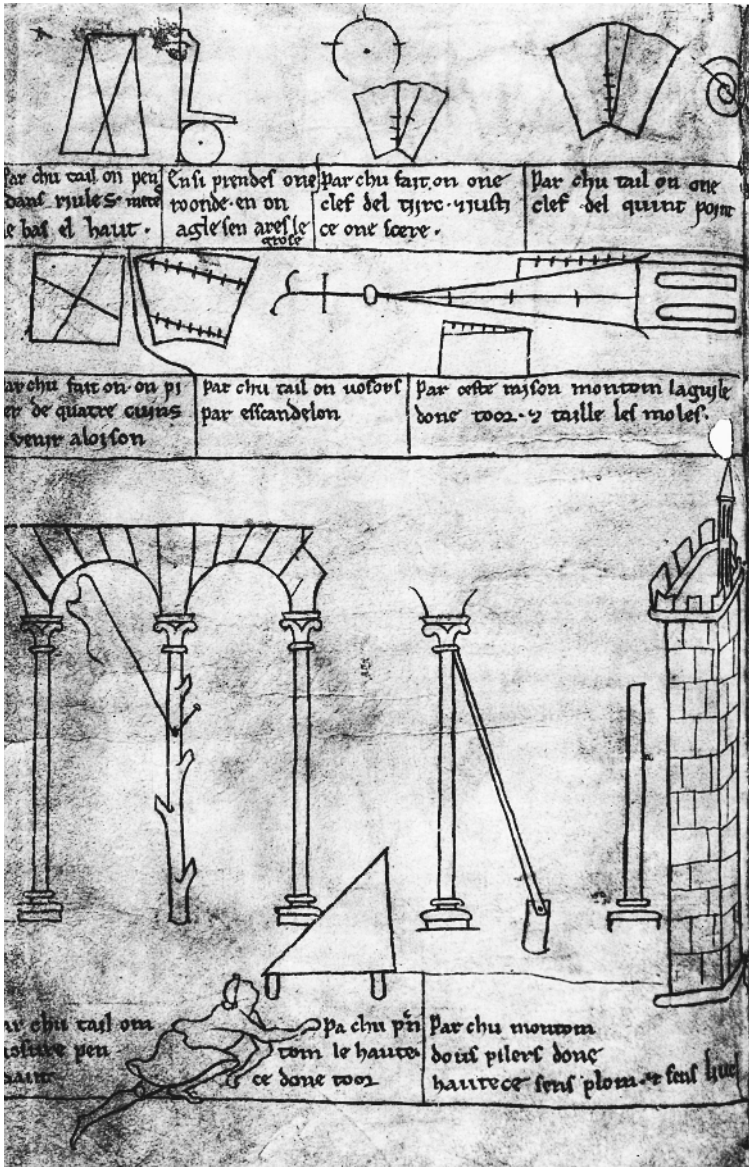 Par chu tail on pen
dans riules. mete
le bas el haut.
Ensi prendes one
roonde. en on
agle sen ares le
grosse
Par chu fait. on one
clef del tirc. ⁊ iusti
ce one scere.
Par chu tail on one
clef del quint point
ar chu fait on. on pi
er de quatre cuins
venir a loison
par chu tail on vosors
par esscandelon
par ceste raison montom laguile
done toor. ⁊ taille les moles.
ar chu tail om
vosure pen
haut
Pa chu prn
tom le haute
ce done toor
Par chu montom
dous pilers done
hautece sens plom. ⁊ sens livel